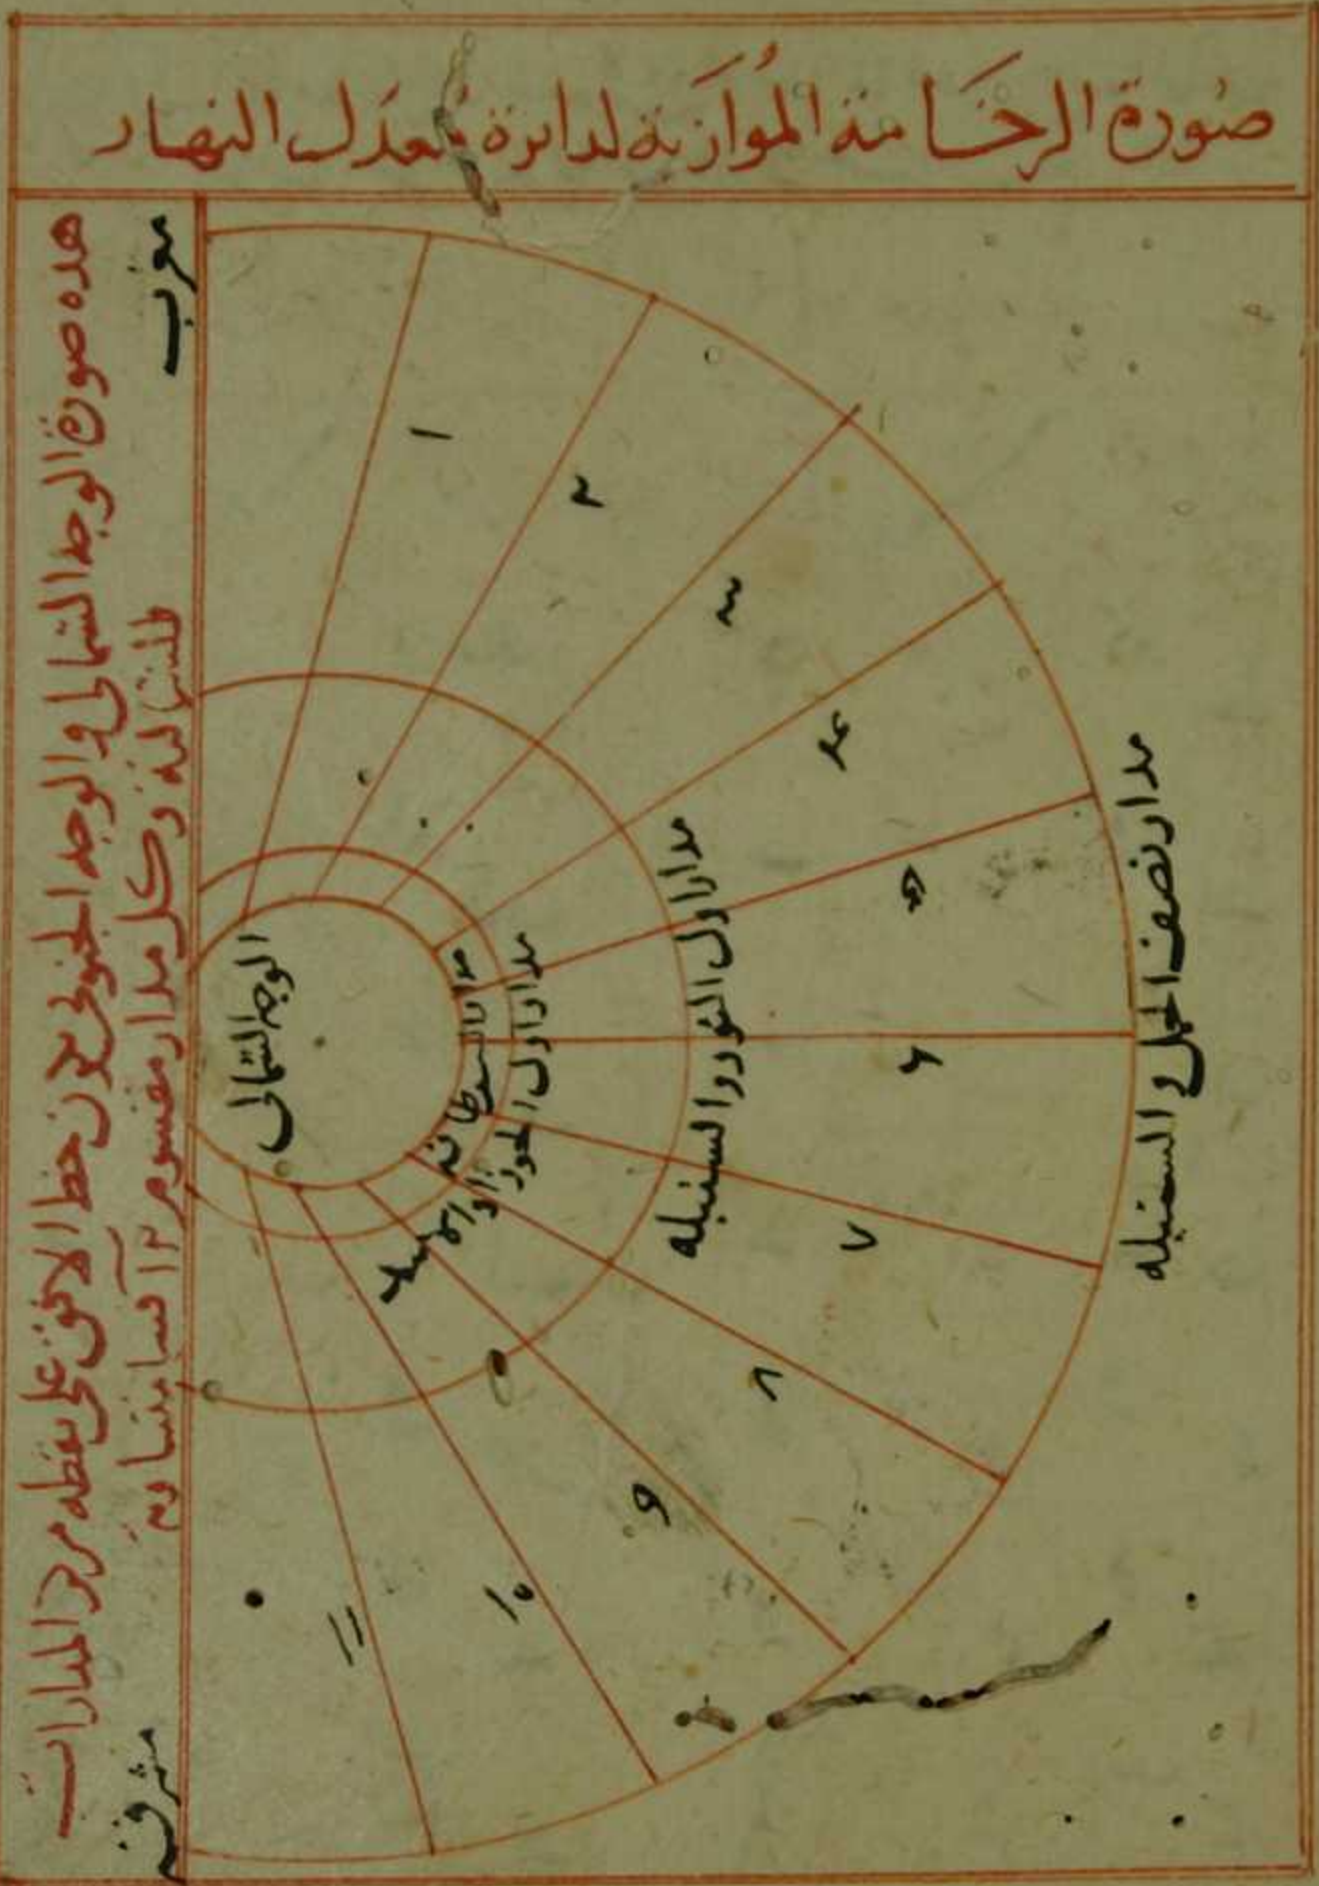 صورة الرخامة الموازية لدائرة معدل النهار
هذه صورة الوجه الشمالي والوجه الجنوبي يكون خط الافق على نقطة مركز المدارات
الشمالية وكل مدار مقسوم ١٢ قسما متساوية
مغرب
مشرق
الوجه الشمالي
مدار السرطان
مدار اول الجوزا والاسد
مدار اول الثور والسنبله
مدار نصف الحمل والسنبله
١
٢
٣
۴
۵
۶
٧
٨
٩
١٠
١١